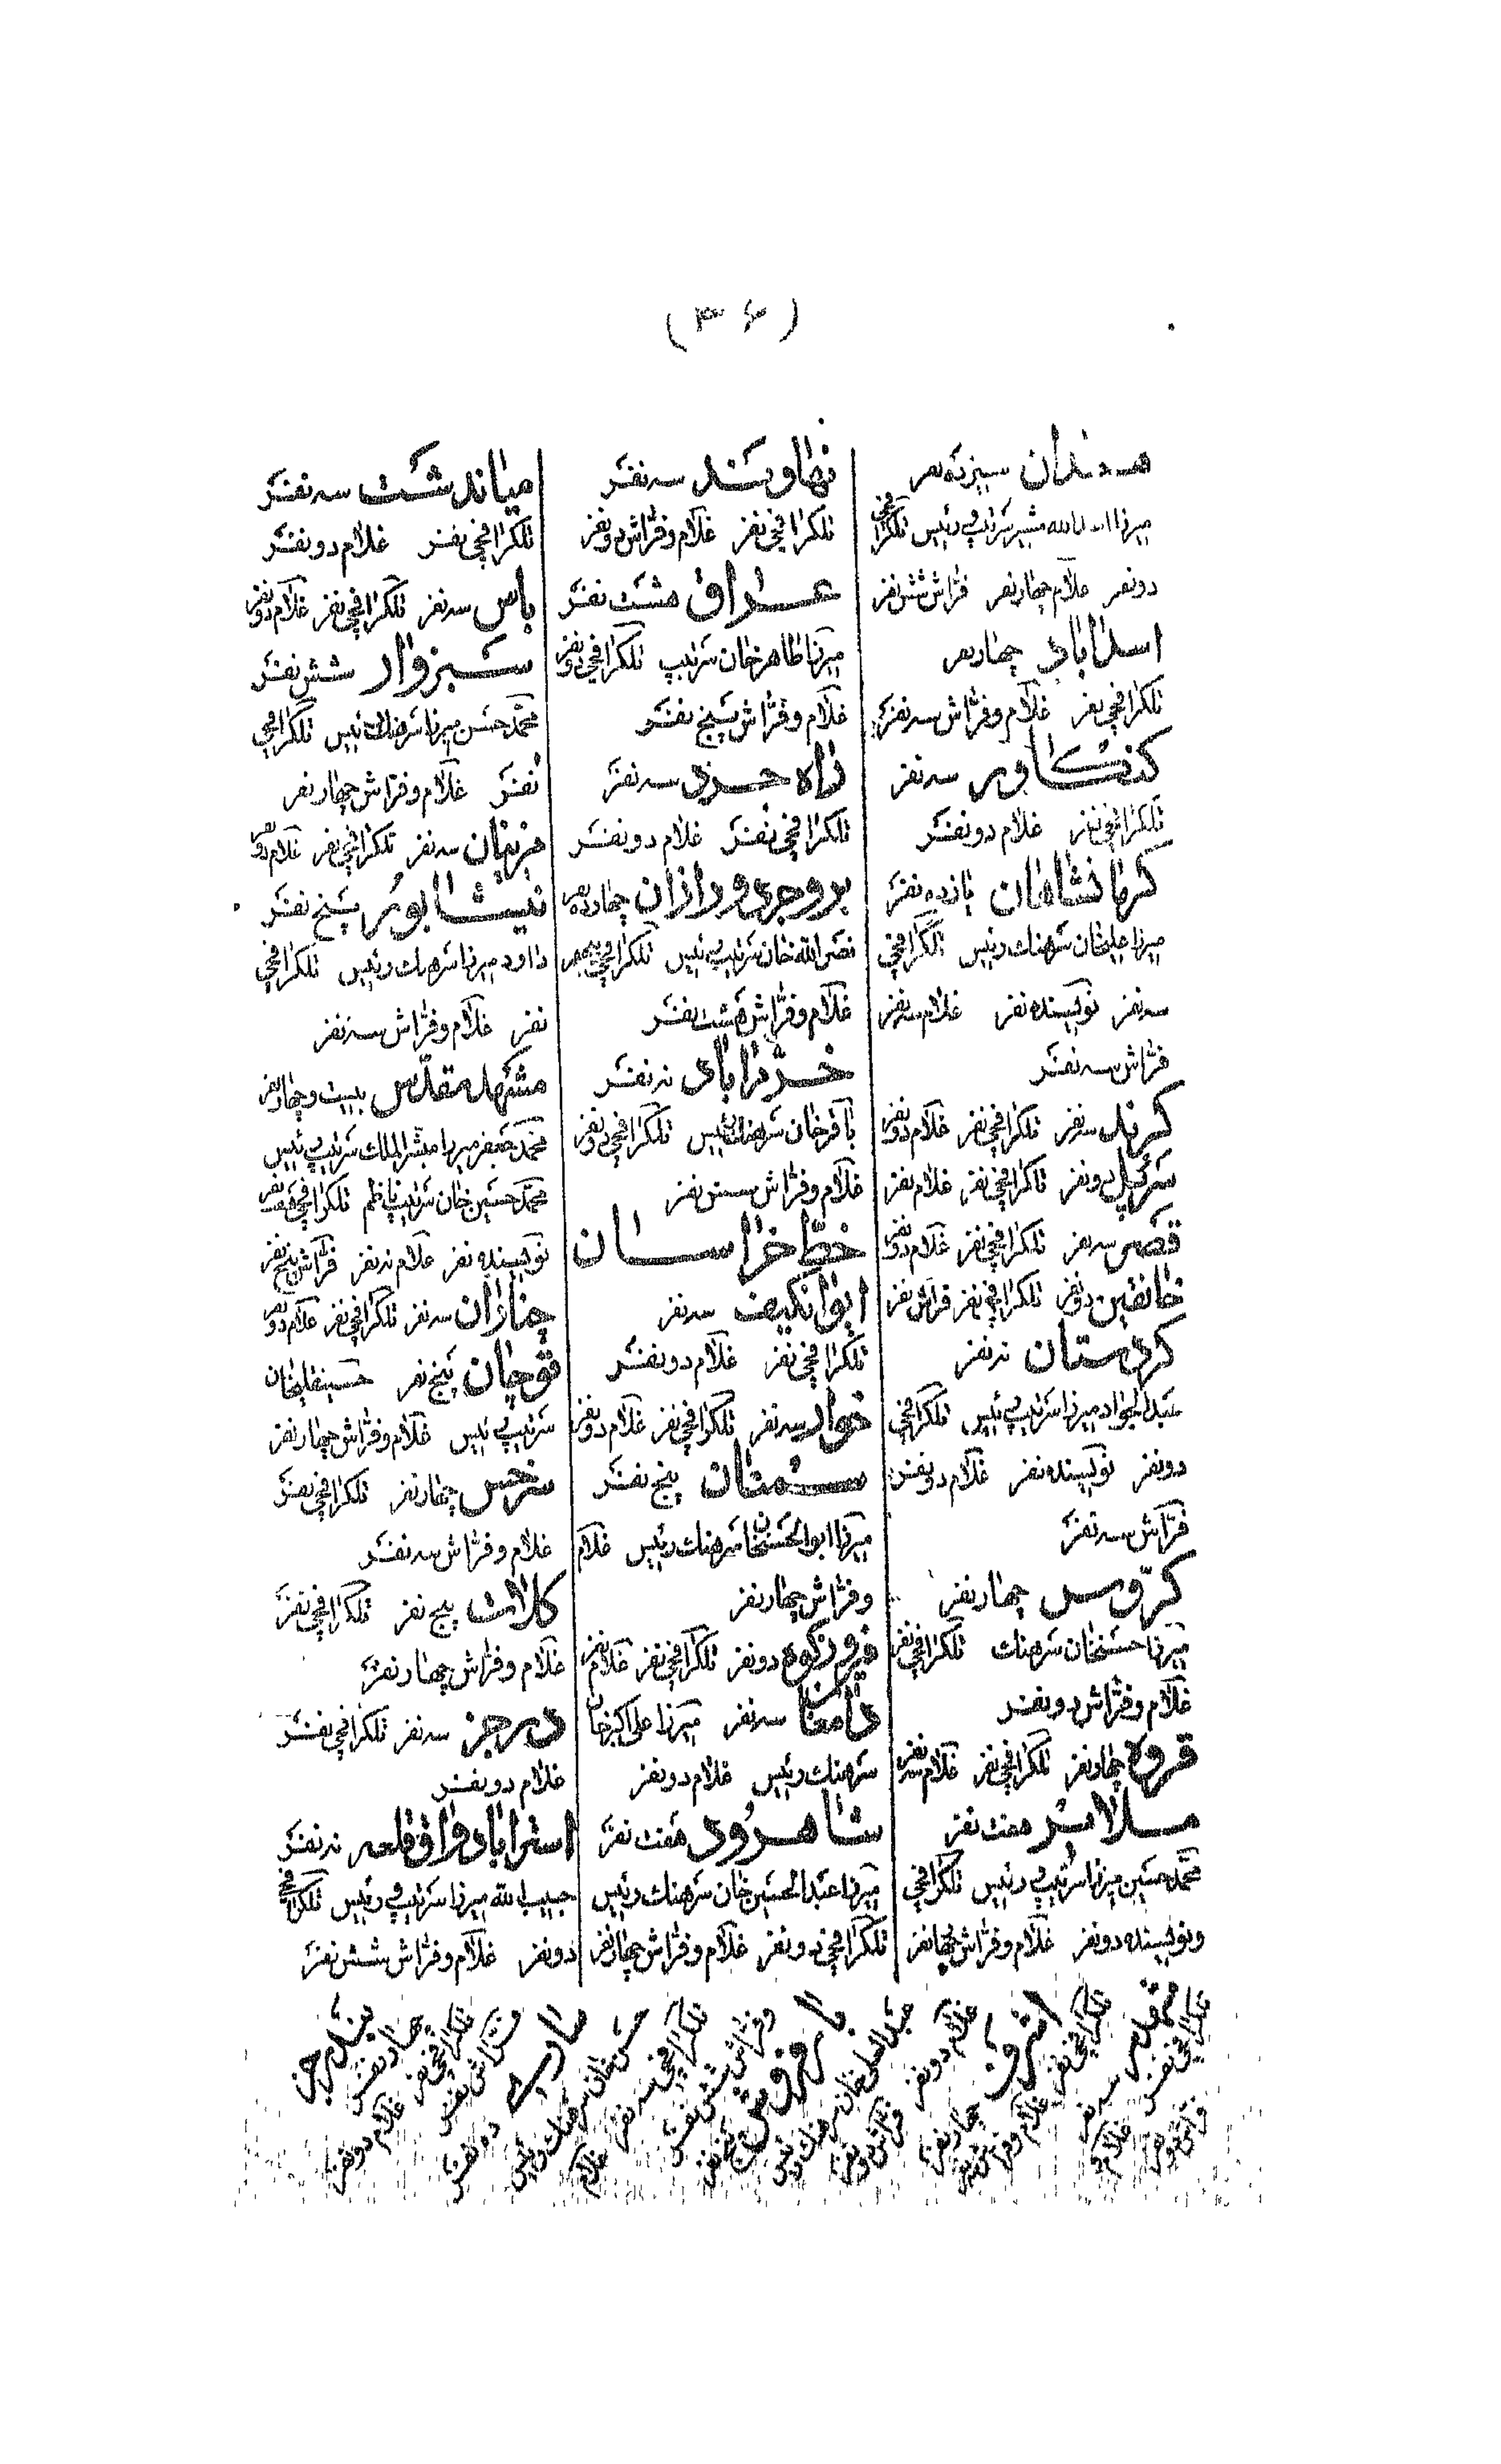 (۳۶)
همدان سیزده نفر
میرزا اسدالله مشیر سرتیپ و رئیس تلگرافچی
دو نفر غلام چهار نفر فراش شش نفر
اسدآباد چهار نفر
تلگرافچی نفر غلام و فراش سه نفر
کنگاور سه نفر
تلگرافچی نفر غلام دو نفر
کرمانشاهان پانزده نفر
میرزا علیخان سرهنك و رئیس تلگرافچی
سه نفر نویسنده نفر غلام سه نفر
فراش سه نفر
کرند سه نفر تلگرافچی نفر غلام دو نفر
سرپل دو نفر تلگرافچی نفر غلام نفر
قصر سه نفر تلگرافچی نفر غلام دو نفر
خانقین دو نفر تلگرافچی نفر فراش نفر
کردستان نه نفر
عبدالجواد میرزا سرتیپ رئیس تلگرافچی
دو نفر نویسنده نفر غلام دو نفر
فراش سه نفر
کروس چهار نفر
میرزا حسنخان سرهنك تلگرافچی نفر
غلام و فراش دو نفر
قروه چهار نفر تلگرافچی نفر غلام سه نفر
ملایر هفت نفر
محمد حسین میرزا سرتیپ و رئیس تلگرافچی
و نویسنده دو نفر غلام و فراش چهار نفر
نهاوند سه نفر
تلگرافچی نفر غلام و فراش دو نفر
عراق هشت نفر
میرزا طاهر خان سرتیپ تلگرافچی دو نفر
غلام و فراش پنج نفر
راه جرد سه نفر
تلگرافچی نفر غلام دو نفر
بروجرد و رازان چهارده نفر
نصرالله خان سرتیپ رئیس تلگرافچی پنج نفر
غلام و فراش هشت نفر
خرم آباد نه نفر
باقر خان سرهنك رئیس تلگرافچی دو نفر
غلام و فراش شش نفر
خط خراسان
ایوانکیف سه نفر
تلگرافچی نفر غلام دو نفر
خوار سه نفر تلگرافچی نفر غلام دو نفر
سمنان پنج نفر
میرزا ابوالحسن خان سرهنك رئیس غلام
و فراش چهار نفر
فیروزکوه دو نفر تلگرافچی نفر غلام نفر
دامغان سه نفر میرزا علی اکبر خان
سرهنك رئیس غلام دو نفر
شاهرود هفت نفر
میرزا عبدالحسین خان سرهنك رئیس
تلگرافچی دو نفر غلام و فراش چهار نفر
میاندشت سه نفر
تلگرافچی نفر غلام دو نفر
باس سه نفر تلگرافچی نفر غلام دو نفر
سبزوار شش نفر
محمد حسن میرزا سرهنك رئیس تلگرافچی
نفر غلام و فراش چهار نفر
مزینان سه نفر تلگرافچی نفر غلام دو نفر
نیشابور پنج نفر
داود میرزا سرهنك و رئیس تلگرافچی
نفر غلام و فراش سه نفر
مشهد مقدس بیست و چهار نفر
محمد جعفر میرزا مبشر الملك سرتیپ رئیس
محمد حسین خان سرتیپ ناظم تلگرافچی هفت نفر
نویسنده نفر غلام نه نفر فراش پنج نفر
چناران سه نفر تلگرافچی نفر غلام دو نفر
قوچان پنج نفر حسینقلیخان
سرتیپ رئیس غلام و فراش چهار نفر
سرخس چهار نفر تلگرافچی نفر
غلام و فراش سه نفر
کلات پنج نفر تلگرافچی نفر
غلام و فراش چهار نفر
درجز سه نفر تلگرافچی نفر
غلام دو نفر
استراباد و اق قلعه نه نفر
حبیب الله میرزا سرتیپ و رئیس تلگرافچی
دو نفر غلام و فراش شش نفر
تلگرافچی نفر
فراش دو نفر
سه نفر
تلگرافچی نفر
اشرف چهار نفر
غلام دو نفر
فراش دو نفر
بارفروش پنج نفر
و فراش شش نفر
تلگرافچی سه نفر غلام
حسن خان سرهنك رئیس
ساری ده نفر
فراش نفر
تلگرافچی نفر غلام دو نفر
چهار نفر
بندر جز